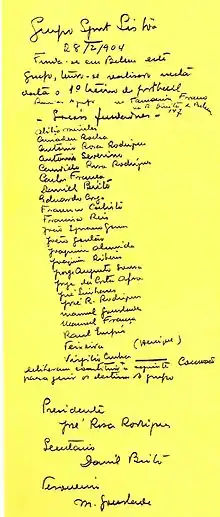 Grupo Sport Lisboa
28/2/904
Funda-se em Belem este
Grupo, tendo-se realisado nesta
data o 1º treino de football
na Farmacia Franco
Socios fundadores
Abilio Meirelles
Amadeu Rocha
Antonio Rosa Rodrigues
Antonio Severino
Candido Rosa Rodrigues
Carlos França
Daniel Brito
Eduardo Corga
Francisco Calisto
Francisco Reis
João Ignacio Gomes
João Goulão
Joaquim Almeida
Joaquim Ribeiro
Jorge Augusto Sousa
Jorge da Costa Afra
José Linhares
José R. Rodrigues
Manuel Gourlade
Manuel França
Raul Empis
Teixeira (Henrique)
Virgilio Cunha
deliberam constituir a seguinte Comissão
para gerir os destinos do grupo
Presidente
José Rosa Rodrigues
Secretário
Daniel Brito
Tesoureiro
M. Gourlade